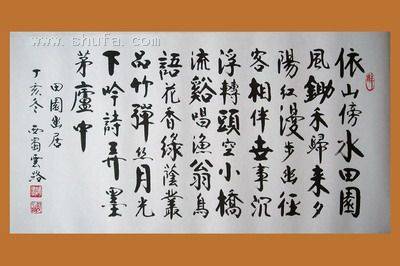 www.shufa.com
依山傍水田園
風鋤禾歸来夕
陽紅漫步幽徑
客相伴世事沉
浮轉頭空小橋
流谿唱漁翁鳥
語花香綠蔭叢
品竹彈絲月光
下吟詩弄墨
茅廬中
田園幽居
丁亥冬